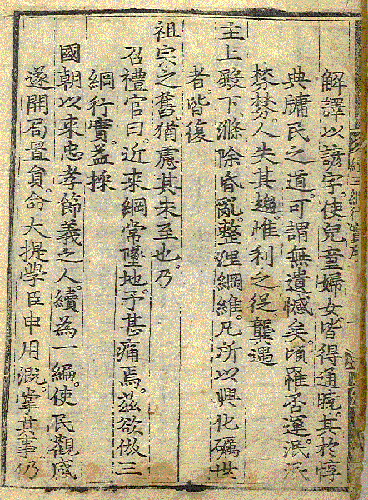 解譯以諺字使兒童婦女皆得通曉其於惇
典牖民之道可謂無遺憾矣頃罹否運泯泯
棼棼人失其趣惟利之從龔遇
主上殿下滌除昏亂整理綱維凡所以興化礪世
者皆復
祖宗之舊猶慮其未至也乃
召禮官曰近來綱常墜地予甚痛焉玆欲倣三
綱行實益採
國朝以來忠孝節義之人續為一編使民觀感
遂開局置員命大提學臣申用漑掌其事仍